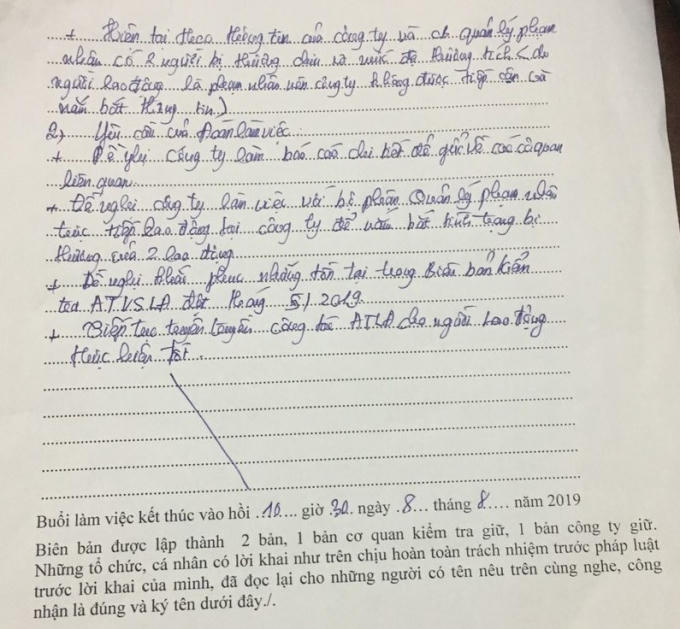 + Hiện tại theo thông tin của công ty và quản lý phạm
nhân có 2 người bị thương chưa rõ mức độ thương tích < do
người lao động là phạm nhân nên công ty không được tiếp cận và
nắm bắt thông tin.)
2) Yêu cầu của Đoàn làm việc.
+ Đề nghị công ty làm báo cáo chi tiết để gửi về các cơ quan
liên quan.
+ Đề nghị công ty làm việc với bộ phận Quản lý phạm nhân
trực tiếp lao động tại công ty để nắm bắt tình trạng bị
thương của 2 lao động
+ Đề nghị khắc phục những tồn tại trong Biên bản kiểm
tra ATVSLĐ đợt tháng 5/2019.
+ tục tuyên truyền công tác ATLĐ cho người lao động
thực hiện tốt.
Buổi làm việc kết thúc vào hồi .10... giờ 30. ngày .8... tháng 8.... năm 2019
Biên bản được lập thành 2 bản, 1 bản cơ quan kiểm tra giữ, 1 bản công ty giữ.
Những tổ chức, cá nhân có lời khai như trên chịu hoàn toàn trách nhiệm trước pháp luật
trước lời khai của mình, đã đọc lại cho những người có tên nêu trên cùng nghe, công
nhận là đúng và ký tên dưới đây./.